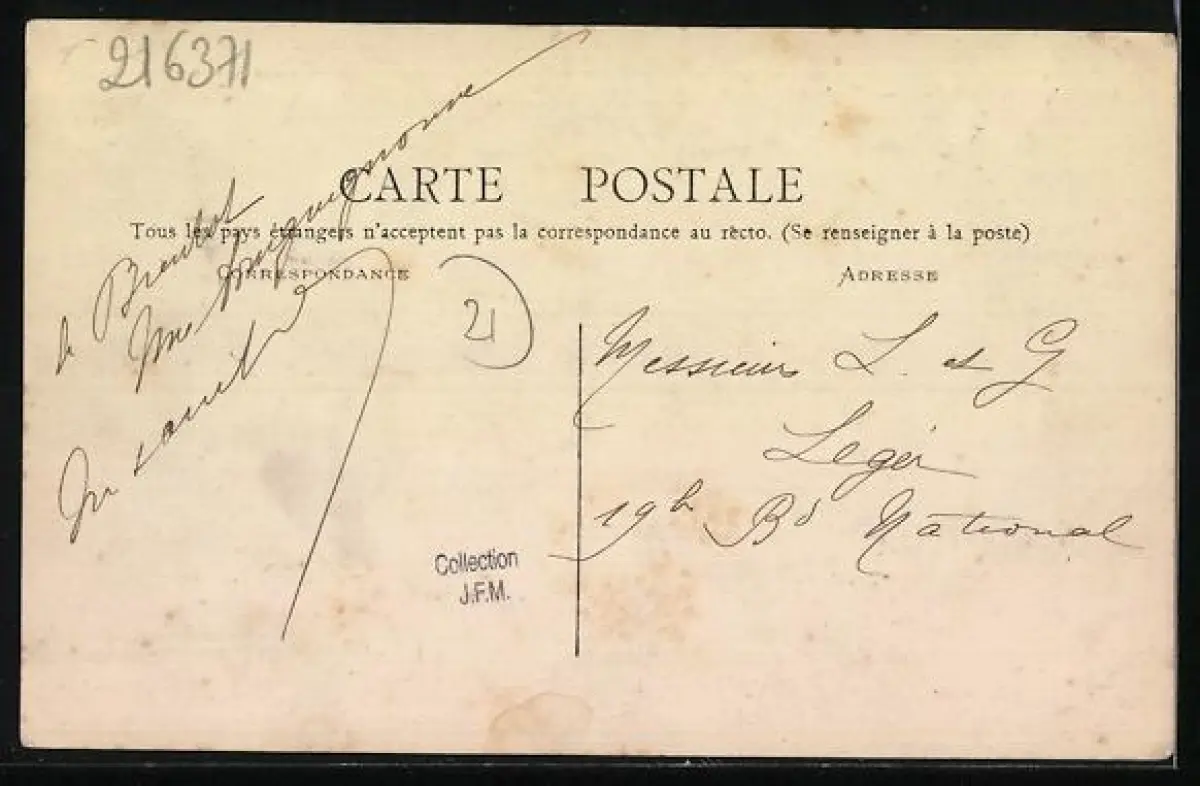 216371
CARTE POSTALE
Tous les pays étrangers n'acceptent pas la correspondance au recto. (Se renseigner à la poste)
CORRESPONDANCE
ADRESSE
Une
21
Messieurs L. et G
Leger
19h Bd National
Collection
J.F.M.